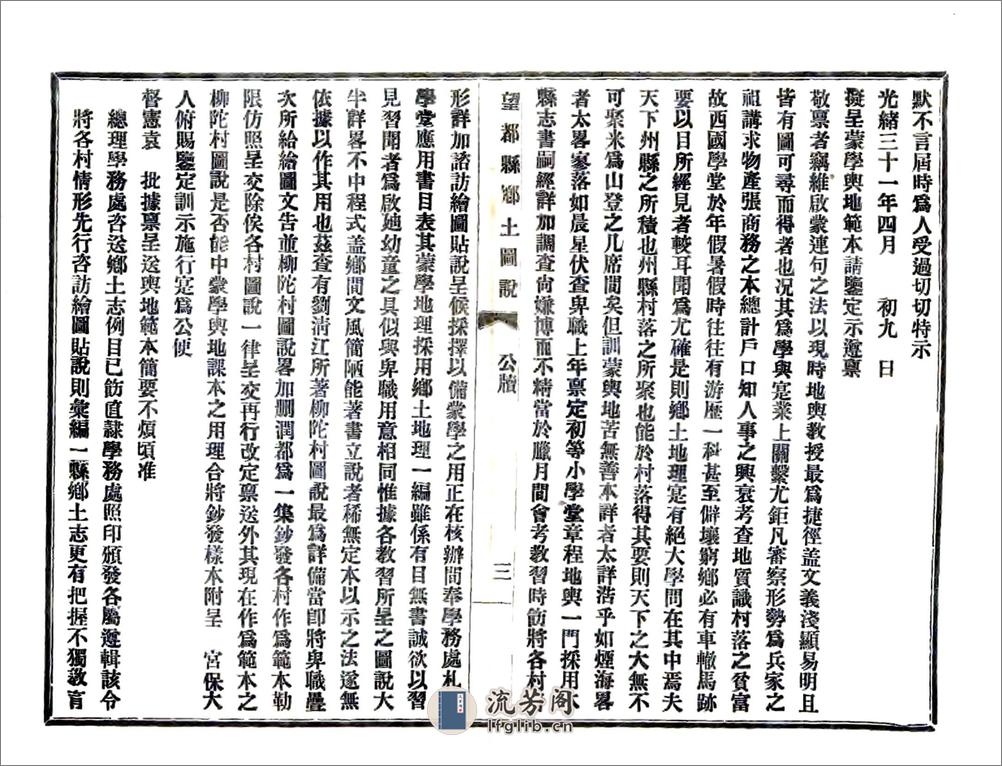 默不言屆時爲人受過切切特示
光緒三十一年四月　初九　日
擬呈蒙學輿地範本請鑒定示遵稟
敬稟者竊維啟蒙連句之法以現時地輿教授最爲捷徑盖文義淺顯易明且
皆有圖可尋而得者也況其爲學與寔業上關繫尤鉅凡審察形勢爲兵家之
祖講求物產張商務之本總計戶口知人事之興衰考查地質識村落之貧富
故西國學堂於年假暑假時往往有游歷一科甚至僻壤窮鄉必有車轍馬跡
要以目所經見者較耳聞爲尤確是則鄉土地理寔有絕大學問在其中焉夫
天下州縣之所積也州縣村落之所聚也能於村落得其要則天下之大無不
可聚米爲山登之几席間矣但訓蒙輿地苦無善本詳者太詳浩乎如煙海畧
者太畧寥落如晨星伏查卑職上年稟定初等小學堂章程地輿一門採用本
縣志書嗣經詳加調查尚嫌博而不精當於臘月間會考教習時飭將各村
望都縣鄉土圖說
公牘
三
形詳加諮訪繪圖貼說呈候採擇以備蒙學之用正在核辦間奉學務處札
學堂應用書目表其蒙學地理採用鄉土地理一編雖係有目無書誠欲以習
見習聞者爲啟廸幼童之具似與卑職用意相同惟據各教習所呈之圖說大
半詳畧不中程式盖鄉間文風簡陋能著書立說者稀無定本以示之法遂無
依據以作其用也茲查有劉淸江所著柳陀村圖說最爲詳備當卽將卑職疊
次所給繪圖文告並柳陀村圖說畧加刪潤都爲一集鈔發各村作爲範本勒
限仿照呈交除俟各村圖說一律呈交再行改定稟送外其現在作爲範本之
柳陀村圖說是否能中蒙學輿地課本之用理合將鈔發樣本附呈　宮保大
人俯賜鑒定訓示施行寔爲公便
督憲袁　批據稟呈送輿地範本簡要不煩頃准
總理學務處咨送鄉土志例目已飭直隸學務處照印頒發各屬遵輯該令
將各村情形先行咨訪繪圖貼說則彙編一縣鄉土志更有把握不獨教育
流芳閣
lfglib.cn